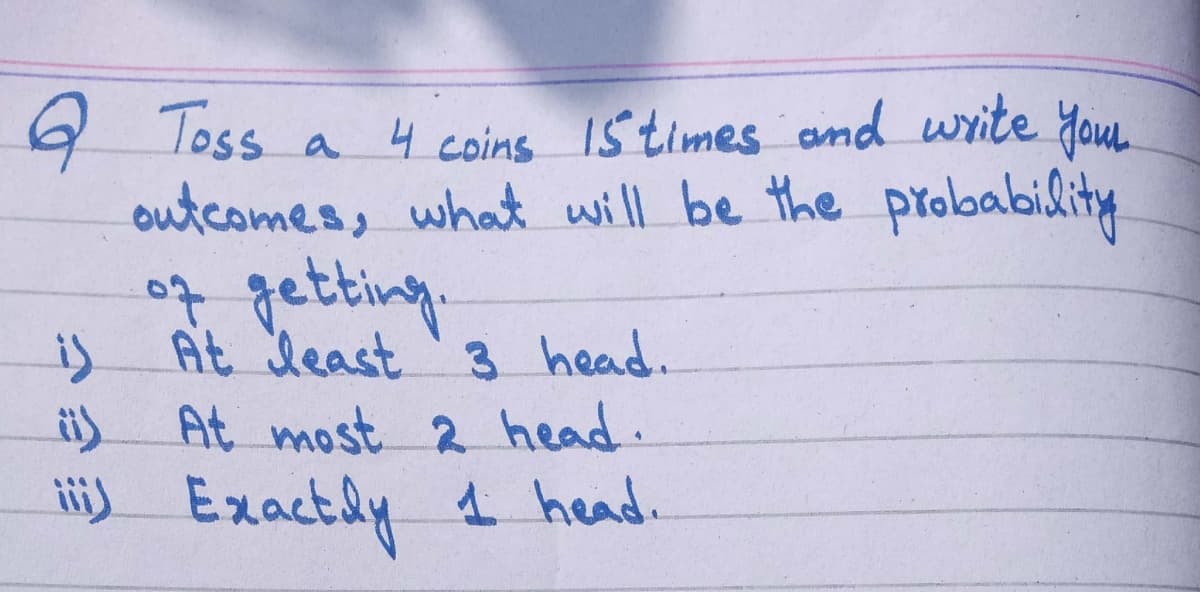 Q Toss a 4 coins 15 times and write your
outcomes, what will be the probability
of getting.
i) At least 3 head.
ii) At most 2 head.
iii) Exactly 1 head.